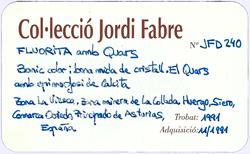 Col·lecció Jordi Fabre
Nº JFD240
FLUORITA amb Quars
Bonic color i bona mida de cristall. El Quars
amb epimorfosi de Calcita
Zona La Viesca, Zona minera de La Collada, Huergo, Siero,
Comarca Oviedo, Principado de Asturias,
España
Trobat: 1991
Adquisició: 11/1991